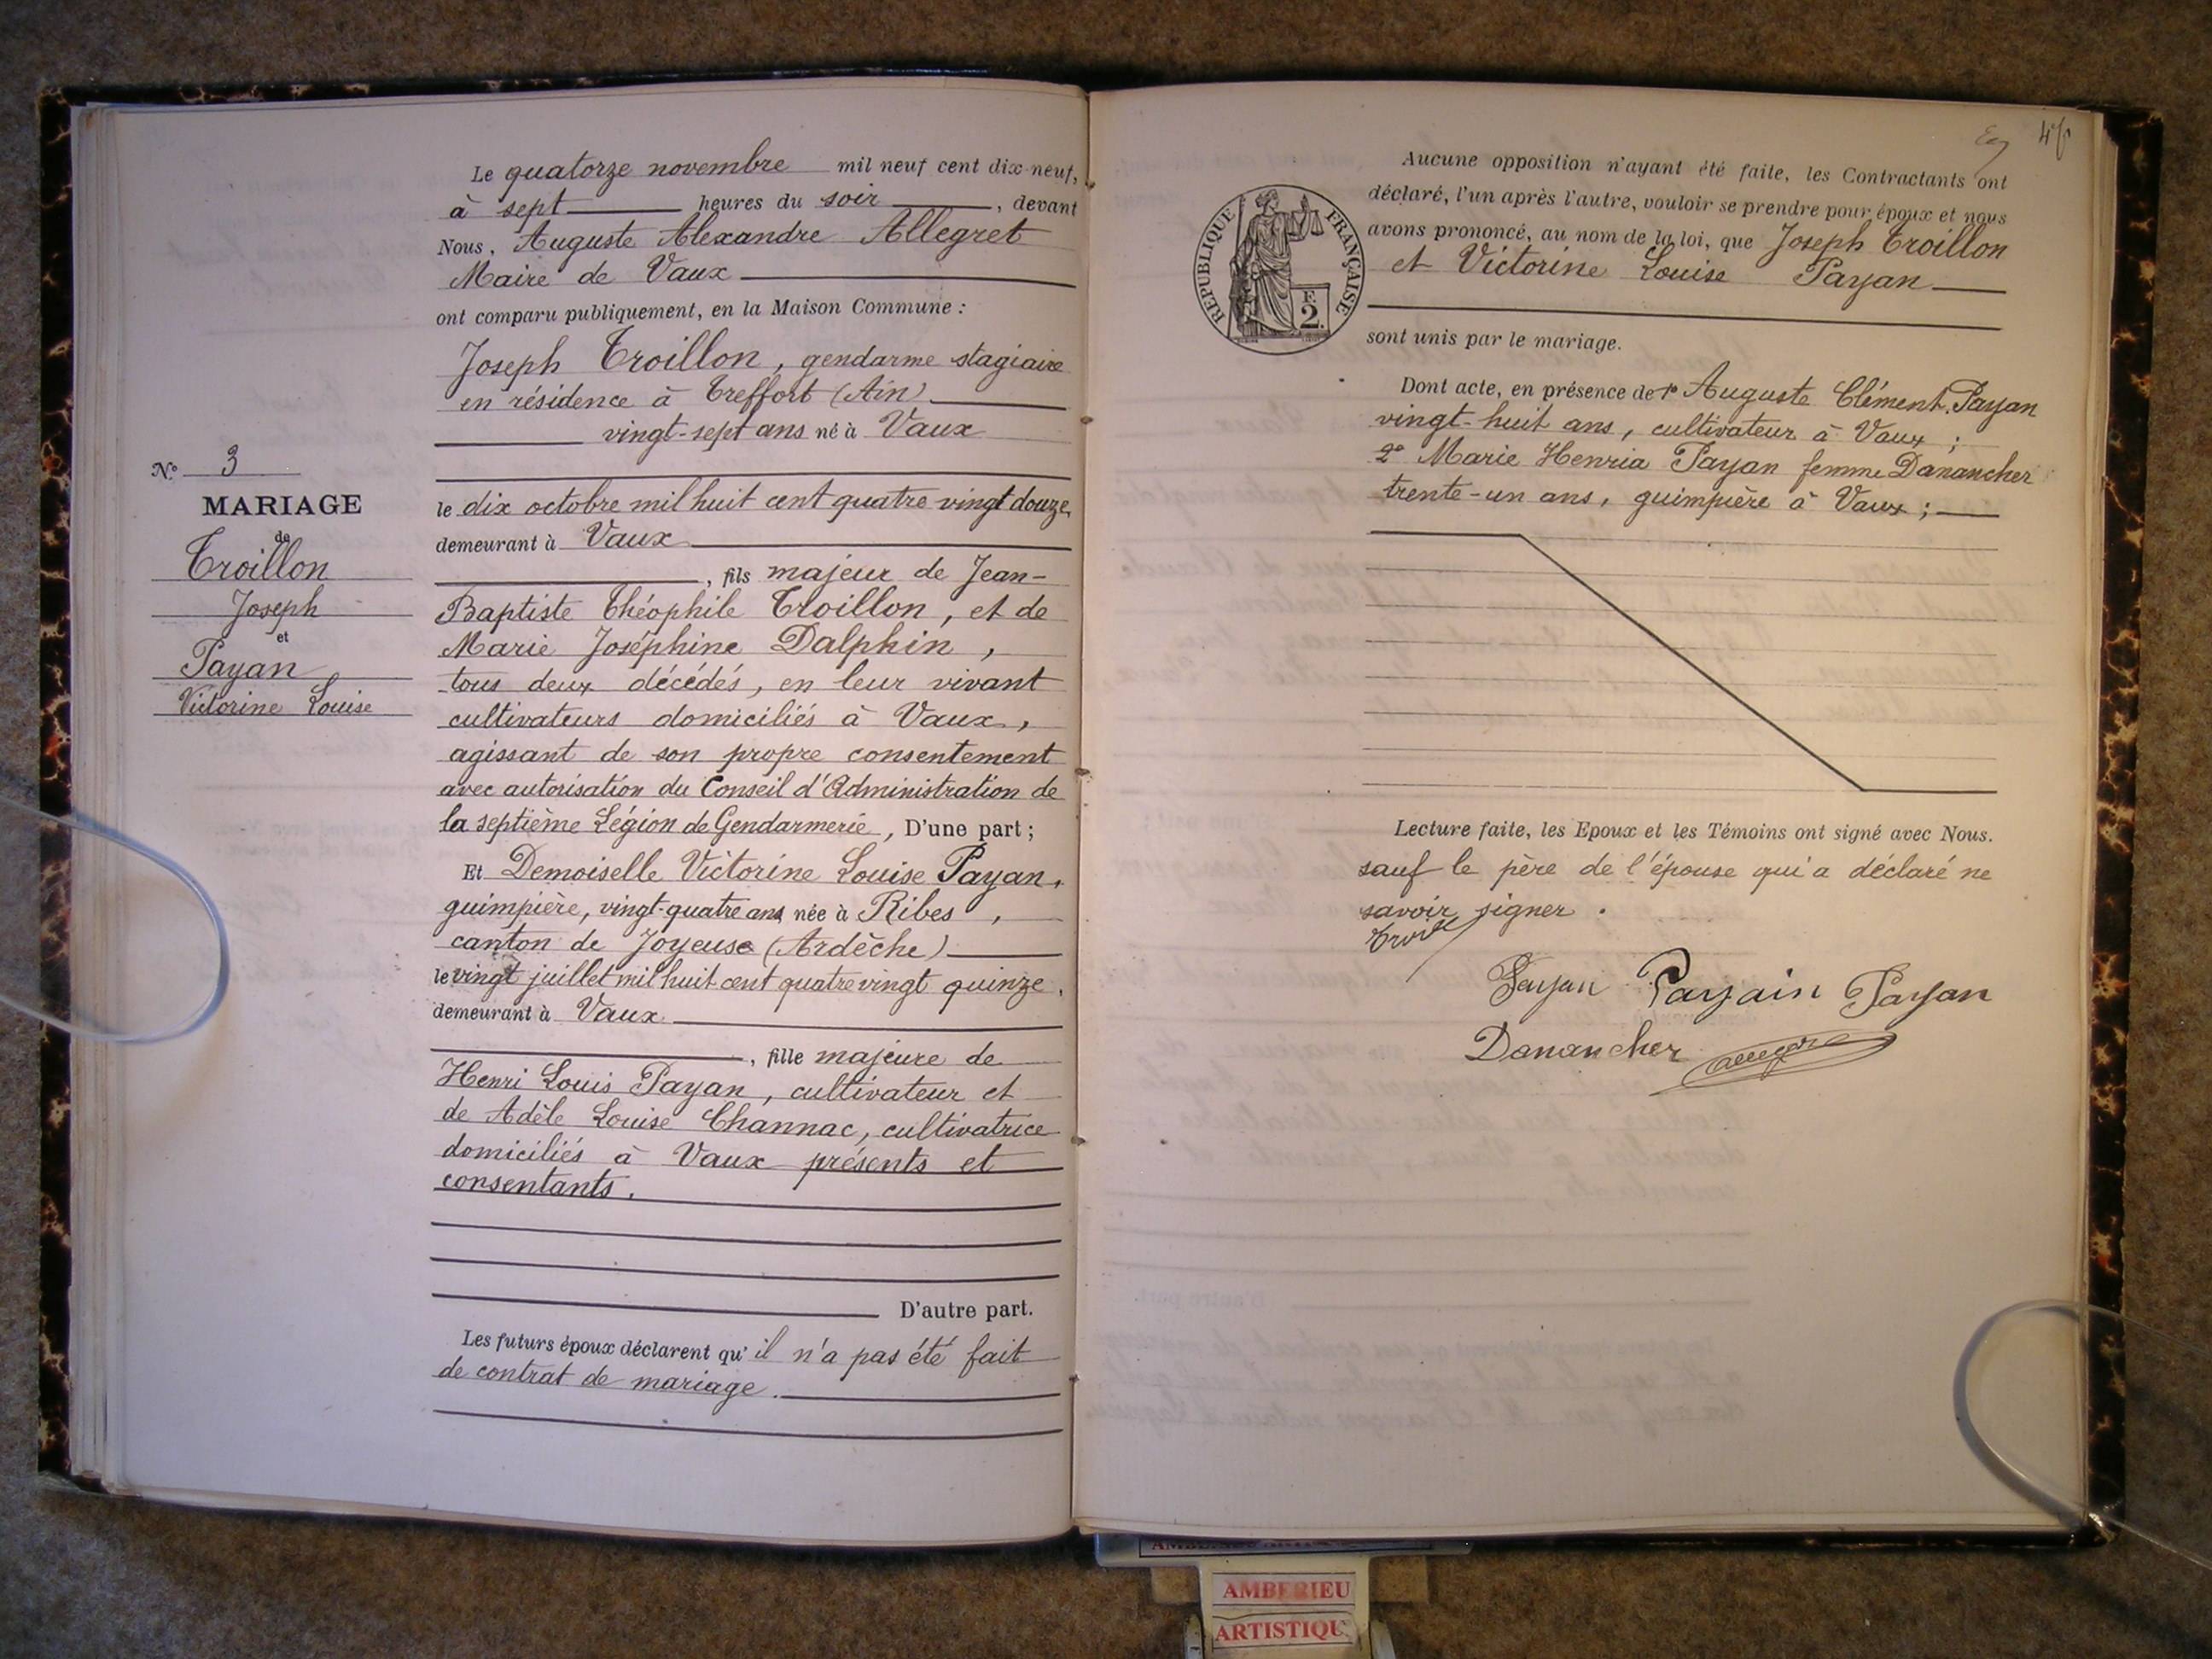 Le quatorze novembre mil neuf cent dix-neuf,
à sept heures du soir, devant
Nous, Auguste Alexandre Allegret
Maire de Vaux
ont comparu publiquement, en la Maison Commune :
Joseph Troillon, gendarme stagiaire
en résidence à Treffort (Ain)
vingt-sept ans né à Vaux
le dix octobre mil huit cent quatre vingt douze,
demeurant à Vaux
, fils majeur de Jean-
Baptiste Théophile Troillon, et de
Marie Joséphine Dalphin,
tous deux décédés, en leur vivant
cultivateurs domiciliés à Vaux,
agissant de son propre consentement
avec autorisation du Conseil d'Administration de
la septième Légion de Gendarmerie, D'une part ;
Et Demoiselle Victorine Louise Payan,
guimpière, vingt-quatre ans née à Ribes,
canton de Joyeuse (Ardèche)
le vingt juillet mil huit cent quatre vingt quinze,
demeurant à Vaux
, fille majeure de
Henri Louis Payan, cultivateur et
de Adèle Louise Channac, cultivatrice
domiciliés à Vaux présents et
consentants.
D'autre part.
Les futurs époux déclarent qu'il n'a pas été fait
de contrat de mariage.
No 3
MARIAGE
de
Troillon
Joseph
et
Payan
Victorine Louise
Aucune opposition n'ayant été faite, les Contractants ont
déclaré, l'un après l'autre, vouloir se prendre pour époux et nous
avons prononcé, au nom de la loi, que Joseph Troillon
et Victorine Louise Payan
sont unis par le mariage.
RÉPUBLIQUE FRANÇAISE
F.
2.
Dont acte, en présence de 1º Auguste Clément Payan
vingt-huit ans, cultivateur à Vaux ;
2º Marie Henria Payan femme Danancher
trente-un ans, guimpière à Vaux ;
Lecture faite, les Epoux et les Témoins ont signé avec Nous.
sauf le père de l'épouse qui a déclaré ne
savoir signer.
Payan Payain Payan
Danancher
AMBERIEU
ARTISTIQU